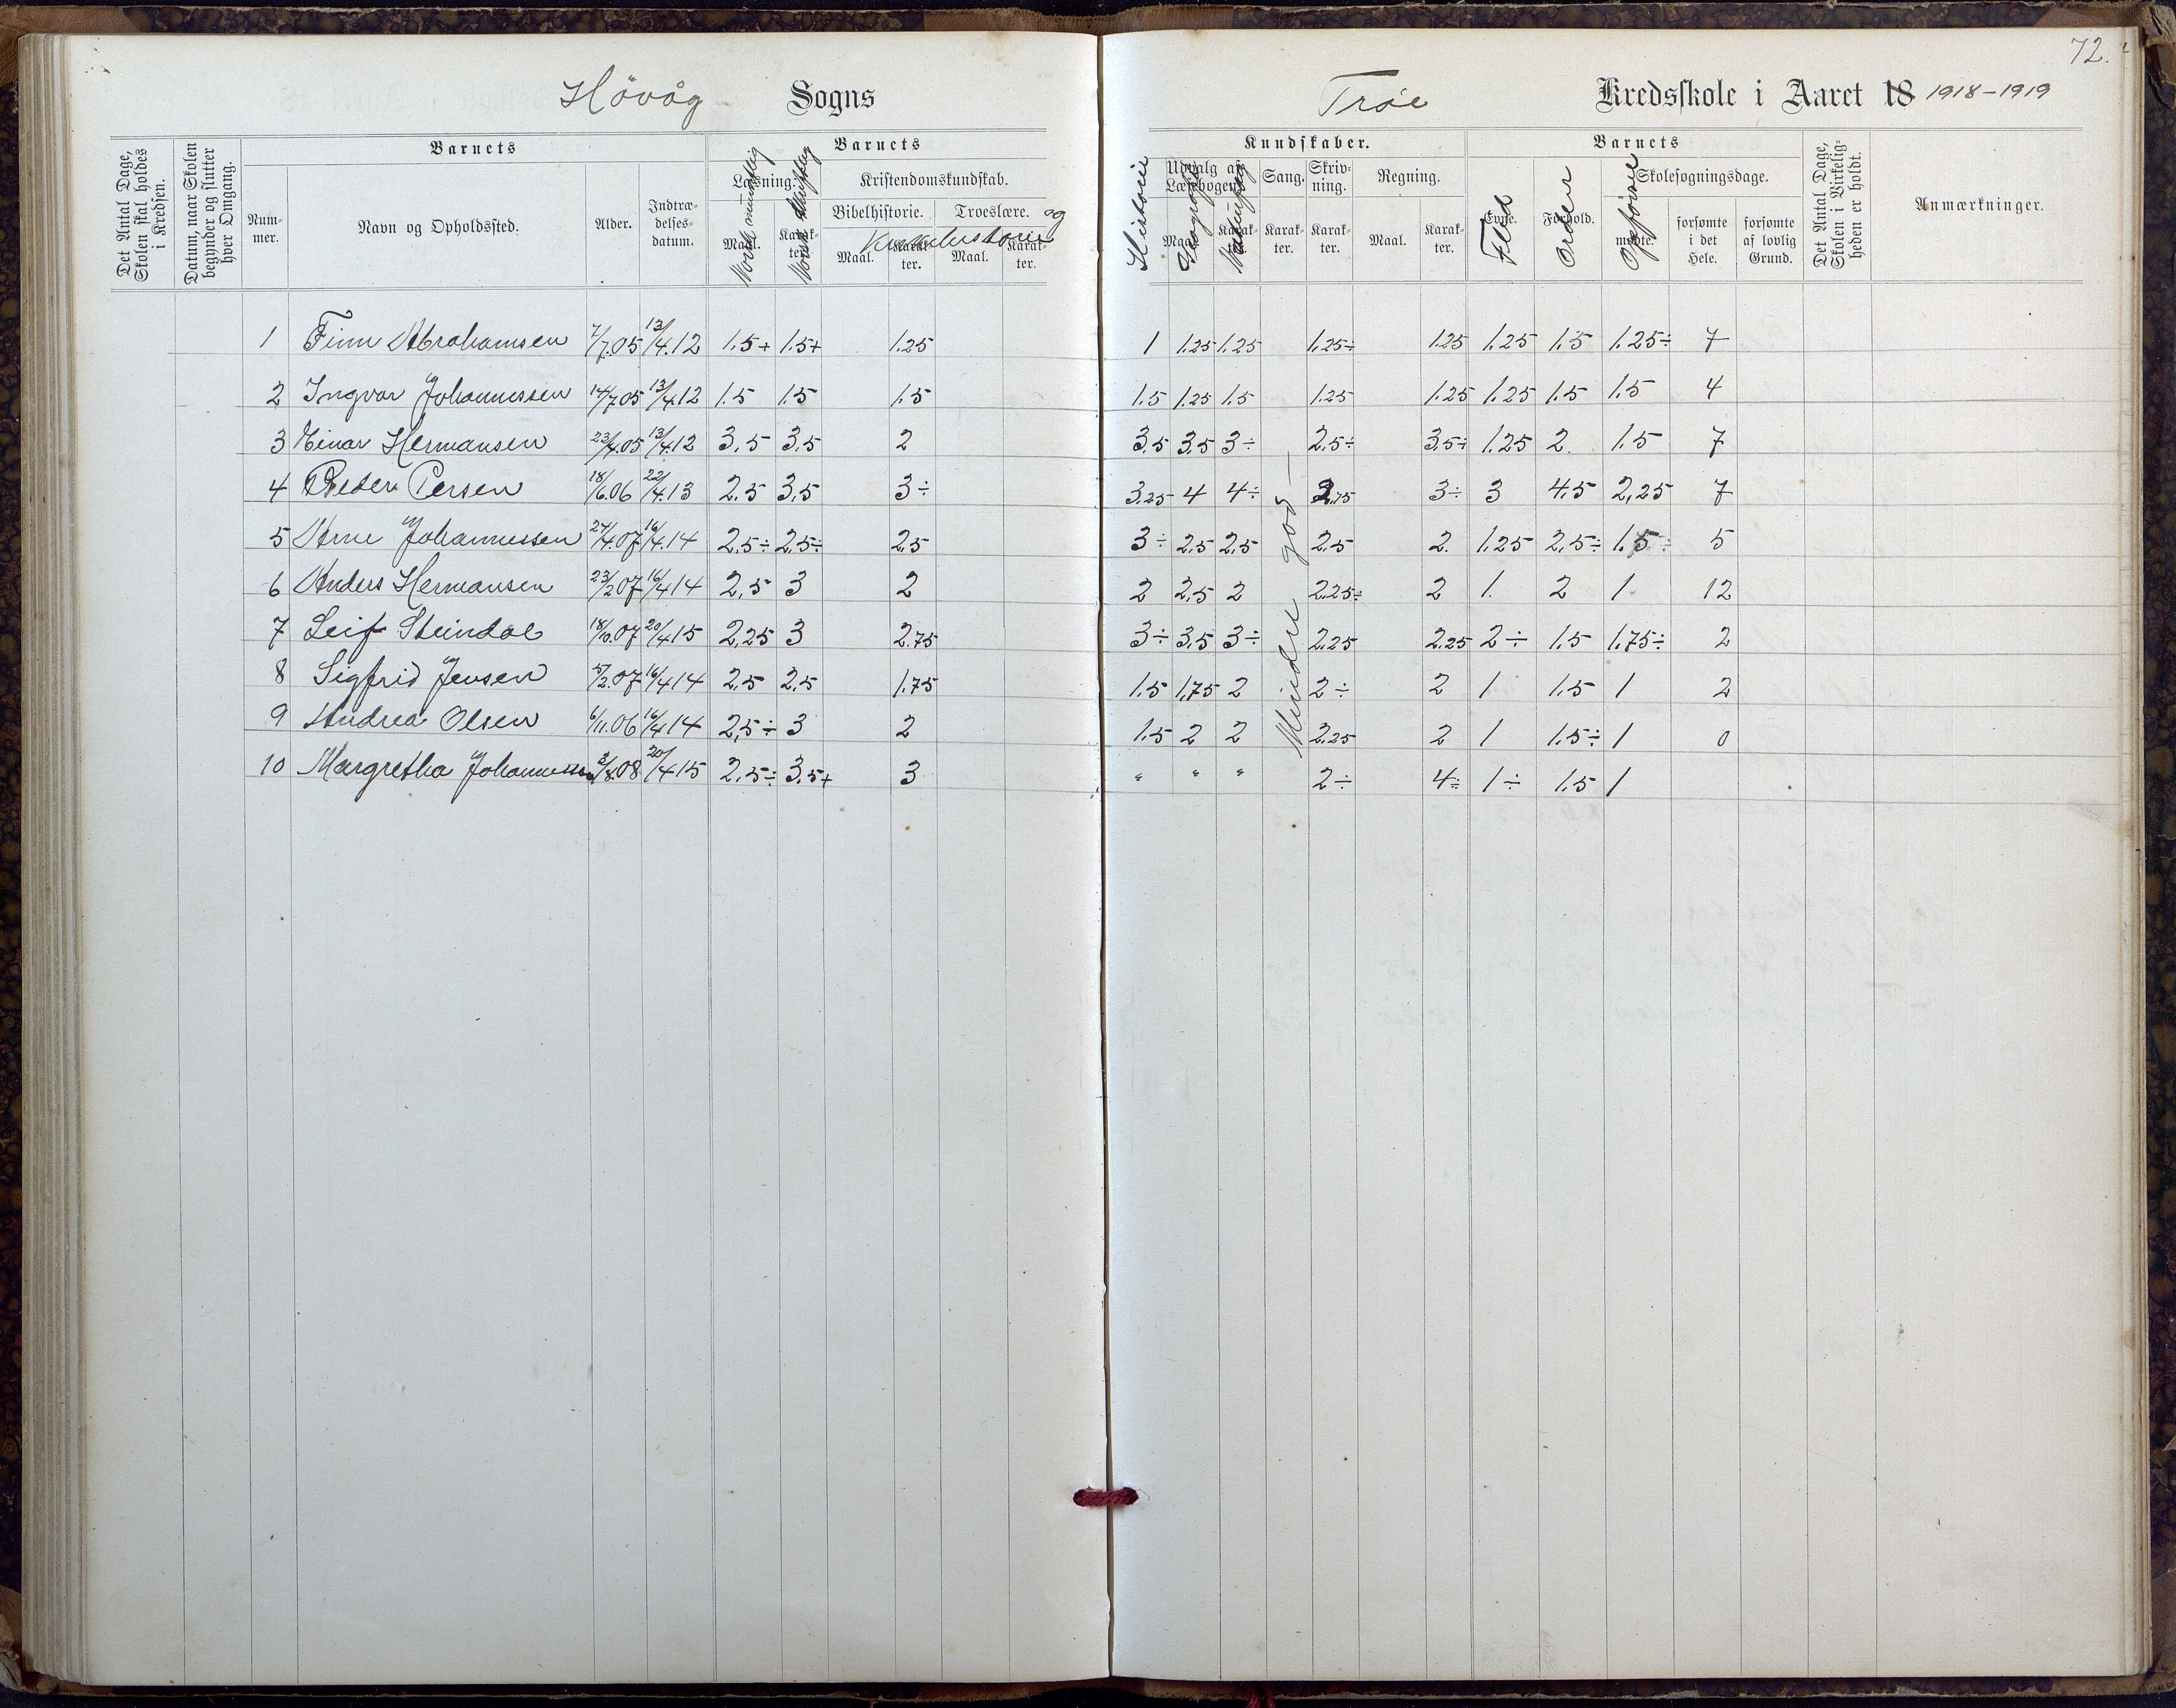 72.
Høvåg Sogns Trøe Kredsskole i Aaret 18 1918-1919
Det Antal Dage, Skolen skal holdes i Kredsen.
Datum, naar Skolen begynder og slutter hver Omgang.
Barnets
Nummer.
Navn og Opholdssted.
Alder.
Indtrædelsesdatum.
Barnets
Læsning.
Maal. Norsk mundtlig
Karakter. Norsk skriftlig
Kristendomskundskab.
Bibelhistorie. Troeslære. og
Kirkehistorie
Maal. Karakter. Maal. Karakter.
Kundskaber.
Historie
Udvalg af Læsebogen.
Maal. Geografi
Karakter. Naturfag
Sang. Karakter.
Skrivning. Karakter.
Regning. Maal. Karakter.
Barnets
Evne. Flid
Forhold. Orden
Skolesøgningsdage.
mødte. Opførsel
forsømte i det Hele.
forsømte af lovlig Grund.
Det Antal Dage, Skolen i Virkeligheden er holdt.
Anmærkninger.
1 Finn Abrahamsen 7/7.05 13/4.12 1.5+ 1.5+ 1.25 1 1.25 1.25 1.25÷ 1.25 1.25 1.5 1.25÷ 7
2 Ingvar Johannessen 14/7.05 13/4.12 1.5 1.5 1.5 1.5 1.25 1.5 1.25 1.25 1.25 1.5 1.5 4
3 Einar Hermansen 23/4.05 13/4.12 3.5 3.5 2 3.5 3.5 3÷ 2.5÷ 3.5÷ 1.25 2. 1.5 7
4 Peder Persen 18/6.06 22/4.13 2.5 3.5 3÷ 3.25 4 4÷ 2.75 3÷ 3 4.5 2,25 7
5 Arne Johannessen 24/4.07 16/4.14 2.5÷ 2.5÷ 2.5 3÷ 2.5 2.5 2.5 2. 1.25 2.5÷ 1.5÷ 5
6 Anders Hermansen 23/2.07 16/4.14 2,5 3 2 2 2.5 2 2.25÷ 2 1. 2 1 12
7 Leif Steindal 18/10.07 20/4.15 2,25 3 2.75 3÷ 3.5 3÷ 2.25 2.25 2÷ 1.5 1,75÷ 2
8 Sigfrid Jensen 5/2.07 16/4.14 2.5 2.5 1.75 1.5 1,75 2 2÷ 2 1 1.5 1 2
9 Andrea Olsen 6/11.06 16/4.14 2,5÷ 3 2 1.5 2 2 2.25 2 1 1.5÷ 1 0
10 Margretha Johannessen 3/8.08 20/4.15 2.5÷ 3.5+ 3 " " " 2÷ 4÷ 1÷ 1.5 1
Mindre god —